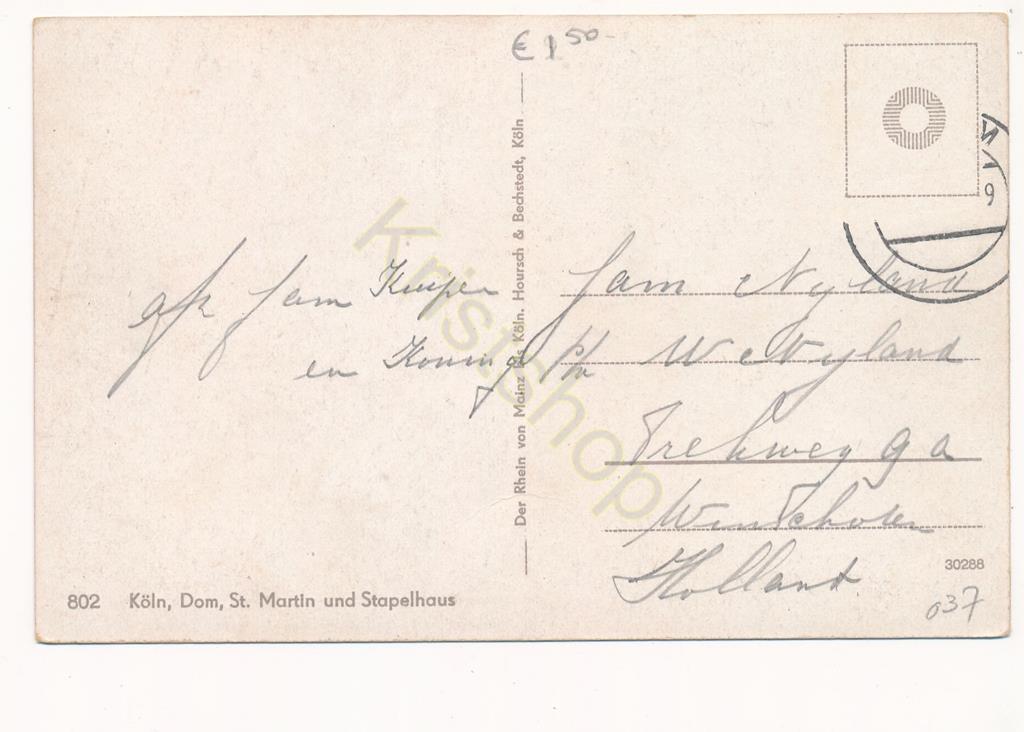 € 1 50-
afz fam Kuiper
en Koning
fam Nyland
p/a W Nyland
Trekweg 9 a
Winschoten
Holland
Der Rhein von Mainz bis Köln. Hoursch & Bechstedt, Köln
802 Köln, Dom, St. Martin und Stapelhaus
30288
037
Kristshop